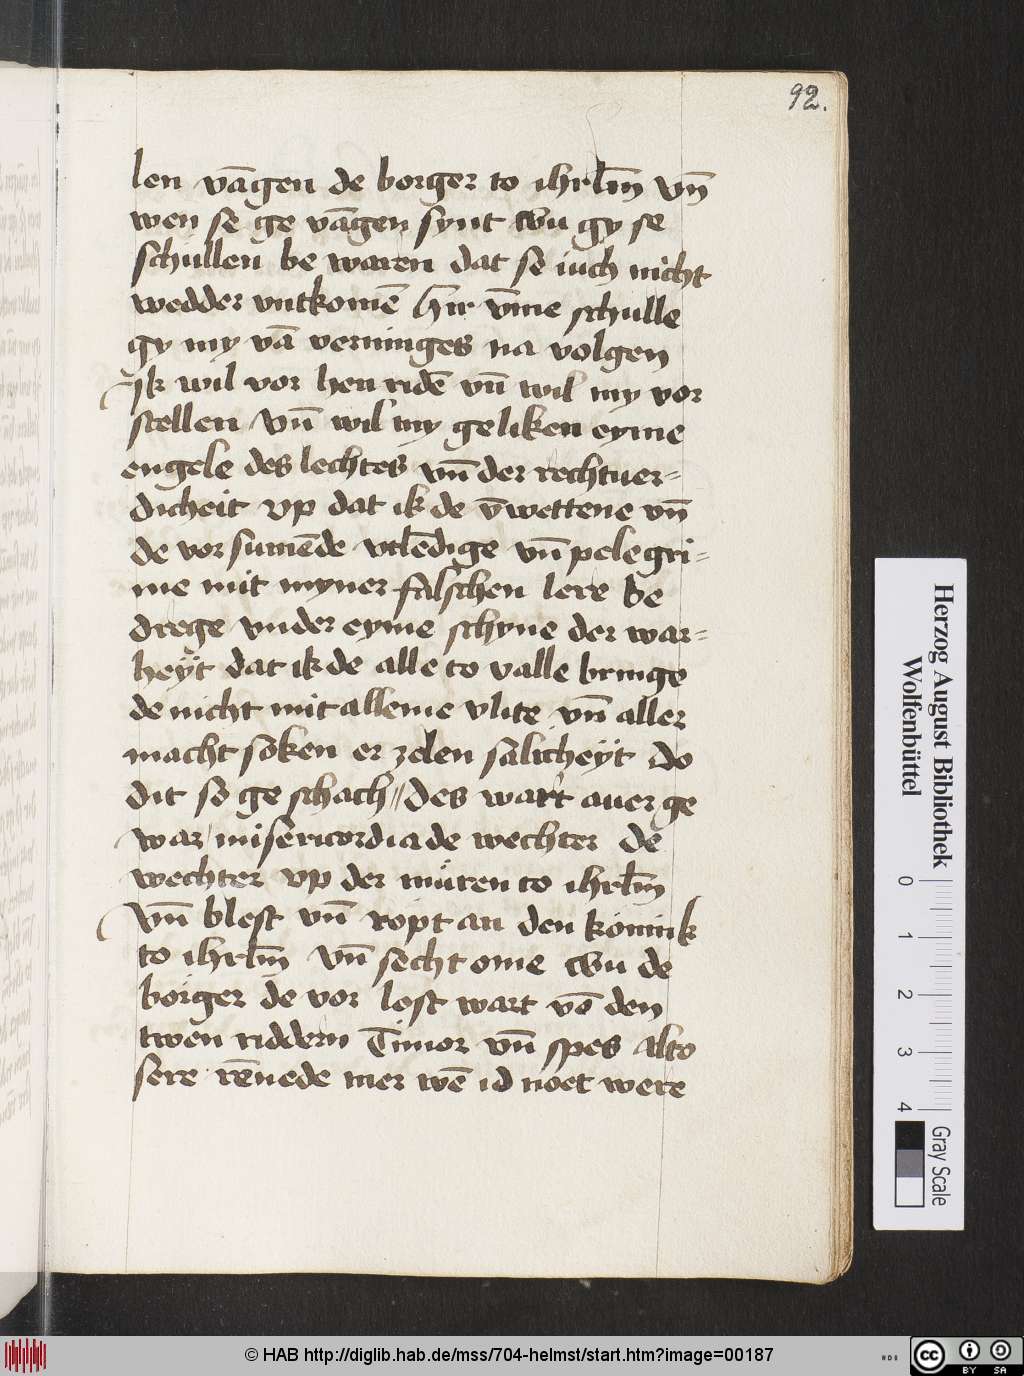 92.
len vāgen de borger to ihrl̄m vn̄
wen se ge vāgen synt wu gy se
schullen be waren dat se iuch nicht
wedder vntkomē hir v̄me schulle
gy my vā verninges na volgen
Ik wil vor hen ridē vn̄ wil my vor
stellen vn̄ wil my geliken eyme
engele des lechtes vn̄ der rechtuer=
dicheit vp dat ik de v̄wettene vn̄
de vor sumēde vtlēdige vn̄ pelegri=
me mit myner falschen lere be
drege vnder eyme schyne der war=
heÿt dat ik de alle to valle bringe
de nicht mit alleme vlite vn̄ aller
macht soken er zelen salicheÿt do
dit so ge schach // des wart auer ge
war / misericordia de wechter de
wechter vp der muren to ihrl̄m
vn̄ blest vn̄ ropt an den konink
to ihrl̄m vn̄ secht ome wu de
borger de vor lost wart vō den
twen riddern Timor vn̄ spes alto
sere rēnede mer wē id noet were
Herzog August Bibliothek
Wolfenbüttel
0 1 2 3 4
Gray Scale
© HAB http://diglib.hab.de/mss/704-helmst/start.htm?image=00187
HAB
cc BY SA